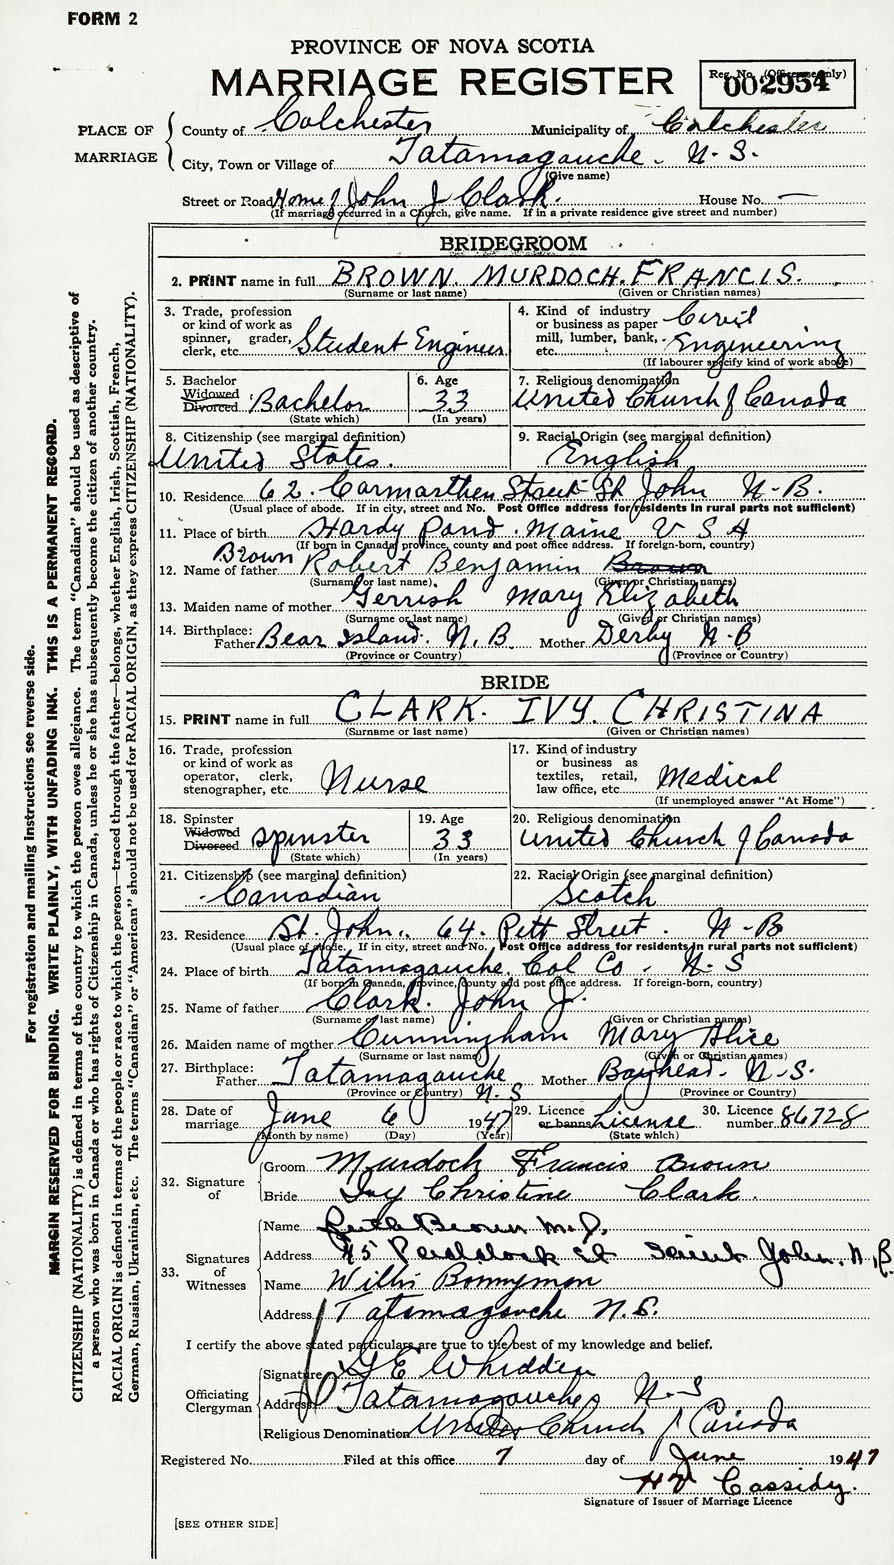 FORM 2
PROVINCE OF NOVA SCOTIA
MARRIAGE REGISTER
Reg. No. (Office use only)
002954
PLACE OF MARRIAGE
County of Colchester Municipality of Colchester
City, Town or Village of Tatamagouche. N.S.
(Give name)
Street or Road Home of John J Clark. House No. —
(If marriage occurred in a Church, give name. If in a private residence give street and number)
BRIDEGROOM
2. PRINT name in full BROWN. MURDOCH. FRANCIS.
(Surname or last name) (Given or Christian names)
3. Trade, profession or kind of work as spinner, grader, clerk, etc. Student Engineer
4. Kind of industry or business as paper mill, lumber, bank, etc. Civil Engineering
(If labourer specify kind of work above)
5. Bachelor Widowed Divorced Bachelor
(State which)
6. Age 33
(In years)
7. Religious denomination
United Church of Canada
8. Citizenship (see marginal definition)
United States.
9. Racial Origin (see marginal definition)
English
10. Residence 62. Carmarthen Street St John N-B.
(Usual place of abode. If in city, street and No. Post Office address for residents in rural parts not sufficient)
11. Place of birth Hardy Pond. Maine U S A
(If born in Canada, province, county and post office address. If foreign-born, country)
12. Name of father Brown Robert Benjamin Brown
(Surname or last name) (Given or Christian names)
13. Maiden name of mother Gerrish Mary Elizabeth
(Surname or last name) (Given or Christian names)
14. Birthplace: Father Bear Island. N.B. Mother Derby N-B
(Province or Country) (Province or Country)
BRIDE
15. PRINT name in full CLARK. IVY. CHRISTINA
(Surname or last name) (Given or Christian names)
16. Trade, profession or kind of work as operator, clerk, stenographer, etc. Nurse
17. Kind of industry or business as textiles, retail, law office, etc. Medical
(If unemployed answer "At Home")
18. Spinster Widowed Divorced spinster
(State which)
19. Age 33
(In years)
20. Religious denomination
United Church of Canada
21. Citizenship (see marginal definition)
Canadian
22. Racial Origin (see marginal definition)
Scotch
23. Residence St. John. 64. Pitt Street. N-B
(Usual place of abode. If in city, street and No. Post Office address for residents in rural parts not sufficient)
24. Place of birth Tatamagouche. Col Co. N-S
(If born in Canada, province, county and post office address. If foreign-born, country)
25. Name of father Clark. John J.
(Surname or last name) (Given or Christian names)
26. Maiden name of mother Cunningham Mary Alice
(Surname or last name) (Given or Christian names)
27. Birthplace: Father Tatamagouche N-S Mother Bayhead. N-S.
(Province or Country) (Province or Country)
28. Date of marriage June 6 1947
(Month by name) (Day) (Year)
29. Licence or banns License
(State which)
30. Licence number 86728
32. Signature of
Groom Murdoch Francis Brown
Bride Ivy Christine Clark.
33. Signatures of Witnesses
Name Ruth Brown M.D.
Address 45 Paddock St Saint John. N.B.
Name Willis Bonnyman
Address Tatamagouche N.S.
I certify the above stated particulars are true to the best of my knowledge and belief.
Officiating Clergyman
Signature G E Whidden
Address Tatamagouche N-S
Religious Denomination United Church of Canada
Registered No. Filed at this office 7 day of June 1947
Cassidy.
Signature of Issuer of Marriage Licence
[SEE OTHER SIDE]
For registration and mailing instructions see reverse side.
MARGIN RESERVED FOR BINDING. WRITE PLAINLY, WITH UNFADING INK. THIS IS A PERMANENT RECORD.
CITIZENSHIP (NATIONALITY) is defined in terms of the country to which the person owes allegiance. The term "Canadian" should be used as descriptive of
a person who was born in Canada or who has rights of Citizenship in Canada, unless he or she has subsequently become the citizen of another country.
RACIAL ORIGIN is defined in terms of the people or race to which the person—traced through the father—belongs, whether English, Irish, Scottish, French,
German, Russian, Ukrainian, etc. The terms "Canadian" or "American" should not be used for RACIAL ORIGIN, as they express CITIZENSHIP (NATIONALITY).